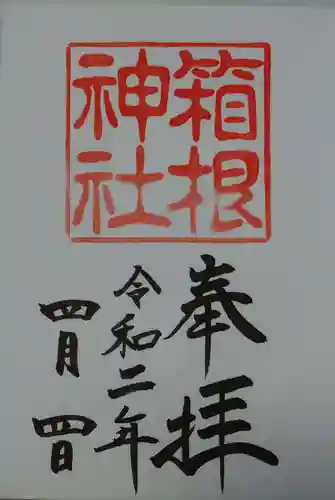 箱根
神社
奉拝
令和二年
四月四日